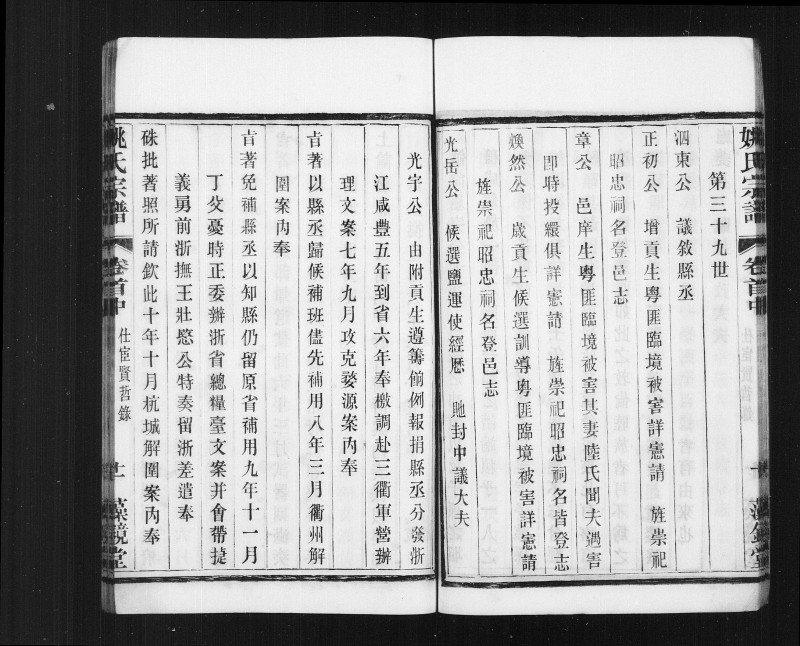 姚氏宗譜
卷首中
仕宦賢哲錄
十
藻鏡堂
第三十九世
泗東公　議敘縣丞
正初公　增貢生粵匪臨境被害詳憲請　旌崇祀
昭忠祠名登邑志
章公　邑庠生粵匪臨境被害其妻陸氏聞夫遇害
即時投繯俱詳憲請　旌崇祀昭忠祠名皆登志
煥然公　歲貢生候選訓導粵匪臨境被害詳憲請
旌崇祀昭忠祠名登邑志
光岳公　候選鹽運使經歷　貤封中議大夫
光宇公　由附貢生遵籌餉例報捐縣丞分發浙
江咸豐五年到省六年奉檄調赴三衢軍營辦
理文案七年九月攻克婺源案內奉
旨著以縣丞歸候補班儘先補用八年三月衢州解
圍案內奉
旨著免補縣丞以知縣仍留原省補用九年十一月
丁父憂時正委辦浙省總糧臺文案并會帶捷
義勇前浙撫王壯愍公特奏留浙差遣奉
硃批著照所請欽此十年十月杭城解圍案內奉
姚氏宗譜
卷首中
仕宦賢哲錄
十一
藻鏡堂